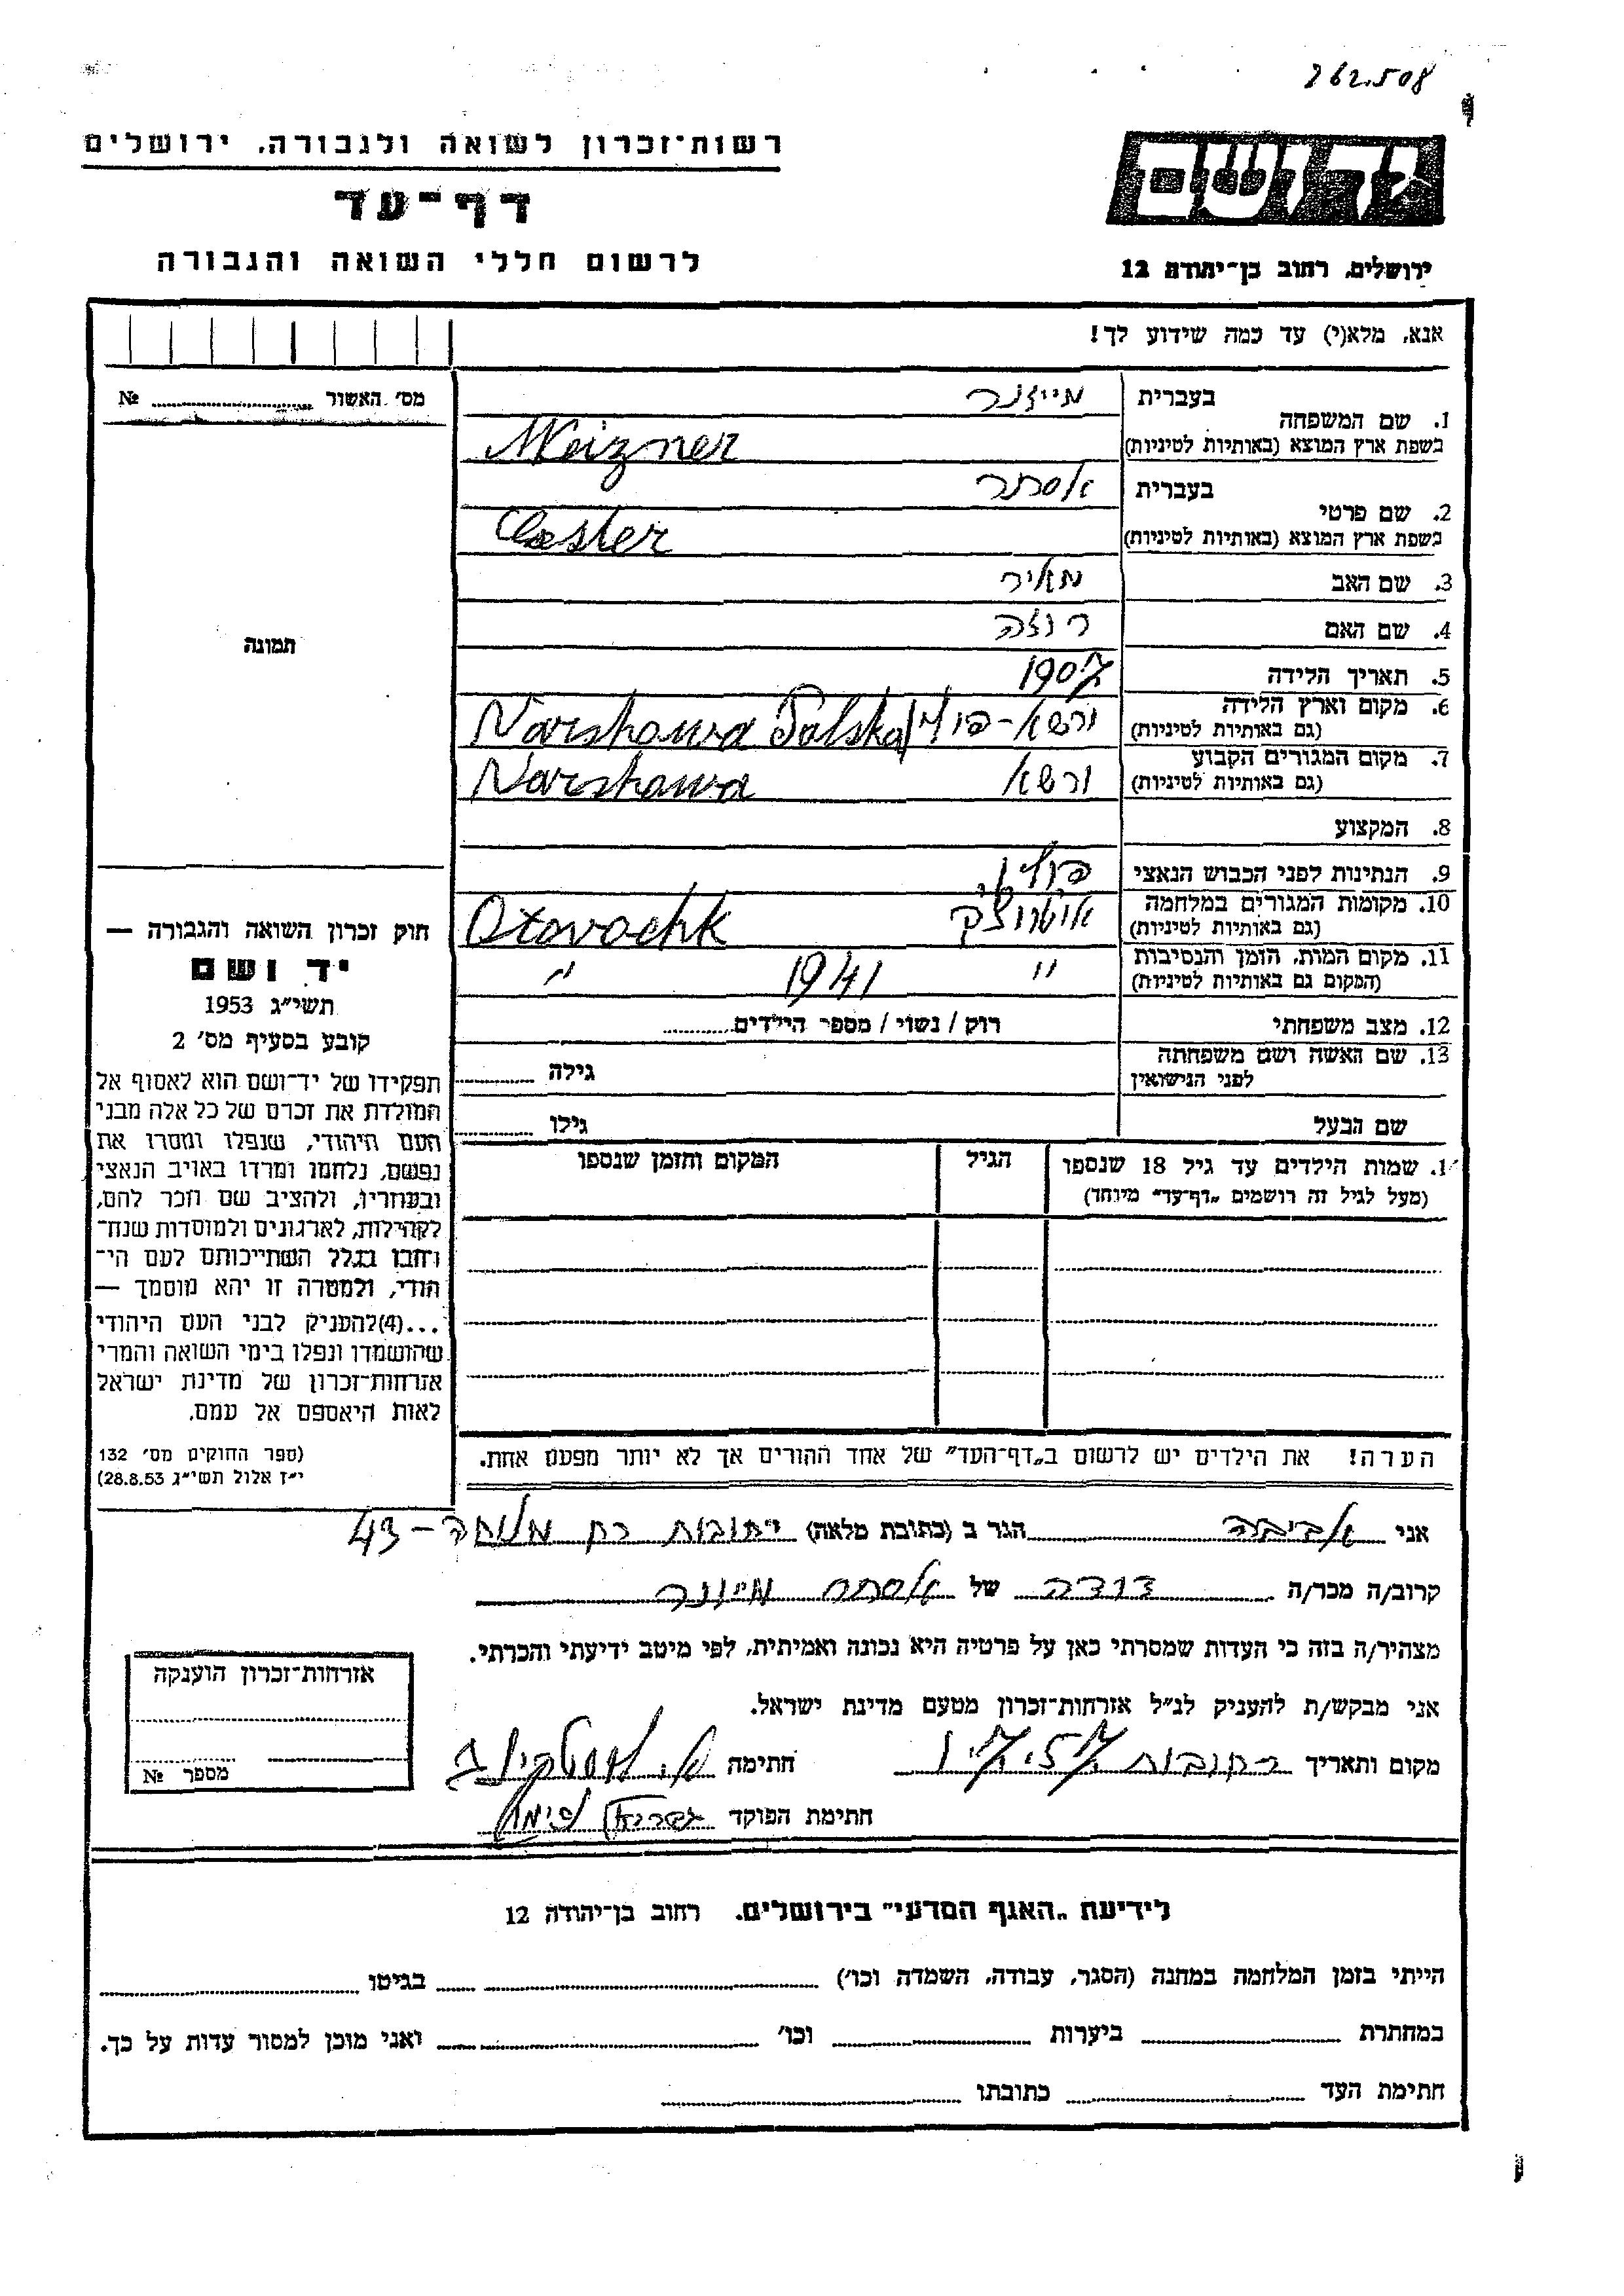 262.508
רשות־זכרון לשואה ולגבורה, ירושלים
דף־עד
לרשום חללי השואה והגבורה
יד ושם
ירושלים, רחוב בן־יהודה 12
אנא, מלא(י) עד כמה שידוע לך!
מס' האשור № ........
תמונה
1. שם המשפחה בעברית מייזנר
בשפת ארץ המוצא (באותיות לטיניות) Meizner
2. שם פרטי בעברית אסתר
בשפת ארץ המוצא (באותיות לטיניות) Ester
3. שם האב מאיר
4. שם האם רוזה
5. תאריך הלידה 1907
6. מקום וארץ הלידה ורשא-פולין Warshawa Polska
(גם באותיות לטיניות)
7. מקום המגורים הקבוע ורשא Warshawa
(גם באותיות לטיניות)
8. המקצוע
9. הנתינות לפני הכבוש הנאצי פולין
10. מקומות המגורים במלחמה אוטווצק Otovochk
(גם באותיות לטיניות)
11. מקום המות, הזמן והנסיבות " 1941 "
(המקום גם באותיות לטיניות)
12. מצב משפחתי רוק / נשוי / מספר הילדים........
13. שם האשה ושם משפחתה גילה ........
לפני הנישואין
שם הבעל גילו ........
1. שמות הילדים עד גיל 18 שנספו הגיל המקום והזמן שנספו
(מעל לגיל זה רושמים „דף־עד" מיוחד)
הערה! את הילדים יש לרשום ב„דף־העד" של אחד ההורים אך לא יותר מפעם אחת.
חוק זכרון השואה והגבורה —
יד ושם
תשי"ג 1953
קובע בסעיף מס' 2
תפקידו של יד־ושם הוא לאסוף אל
המולדת את זכרם של כל אלה מבני
העם היהודי, שנפלו ומסרו את
נפשם, נלחמו ומרדו באויב הנאצי
ובעוזריו, ולהציב שם וזכר להם,
לקהילות, לארגונים ולמוסדות שנח־
רחבו בגלל השתייכותם לעם הי־
הודי, ולמטרה זו יהא מוסמך —
...(4)להעניק לבני העם היהודי
שהושמדו ונפלו בימי השואה והמרי
אזרחות־זכרון של מדינת ישראל
לאות היאספם אל עמם.
(ספר החוקים מס' 132
י"ז אלול תשי"ג 28.8.53)
אני אביבה הגר ב (כתובת מלאה) רחובות רח מנוחה-43
קרוב/ה מכר/ה דודה של אסתר מייזנר
מצהיר/ה בזה כי העדות שמסרתי כאן על פרטיה היא נכונה ואמיתית, לפי מיטב ידיעתי והכרתי.
אני מבקש/ת להעניק לנ"ל אזרחות־זכרון מטעם מדינת ישראל.
מקום ותאריך רחובות חתימה
חתימת הפוקד
אזרחות־זכרון הוענקה
מספר №
לידיעת „האגף המדעי" בירושלים, רחוב בן־יהודה 12
הייתי בזמן המלחמה במחנה (הסגר, עבודה, השמדה וכו') ........ בגיטו ........
במחתרת ........ ביערות ........ וכו' ........ ואני מוכן למסור עדות על כך.
חתימת העד ........ כתובתו ........